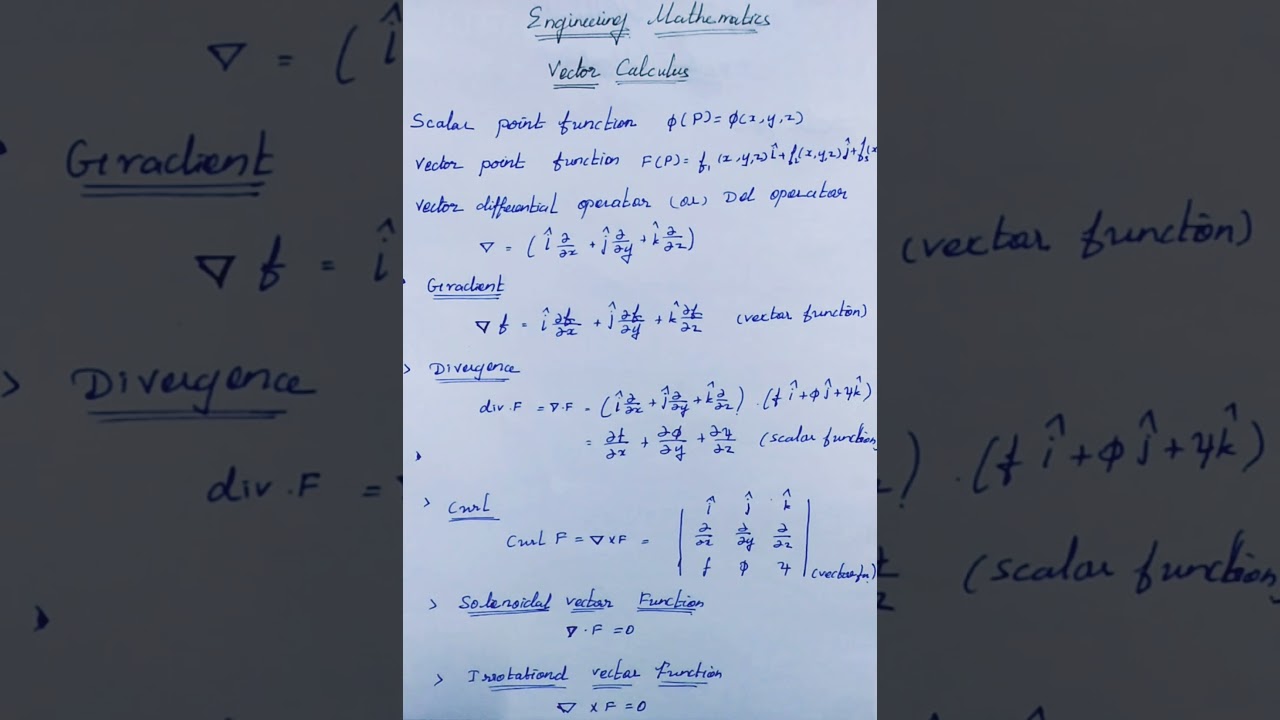 Engineering Mathematics
Vector Calculus
Scalar point function ϕ(P)= ϕ(x,y,z)
Vector point function F(P)= f₁(x,y,z)î+f₂(x,y,z)ĵ+f₃(x
Vector differential operator (or) Del operator
∇ = (î ∂/∂x + ĵ ∂/∂y + k̂ ∂/∂z)
Gradient
∇f = î ∂f/∂x + ĵ ∂f/∂y + k̂ ∂f/∂z (vector function)
> Divergence
div.F = ∇.F = (î ∂/∂x + ĵ ∂/∂y + k̂ ∂/∂z) . (f î+ϕĵ+ψk̂)
= ∂f/∂x + ∂ϕ/∂y + ∂ψ/∂z (scalar function
> Curl
Curl F = ∇×F = | î ĵ k̂
∂/∂x ∂/∂y ∂/∂z
f ϕ ψ | (vector fn)
> Solenoidal vector Function
∇.F = 0
> Irrotational vector Function
∇ × F = 0